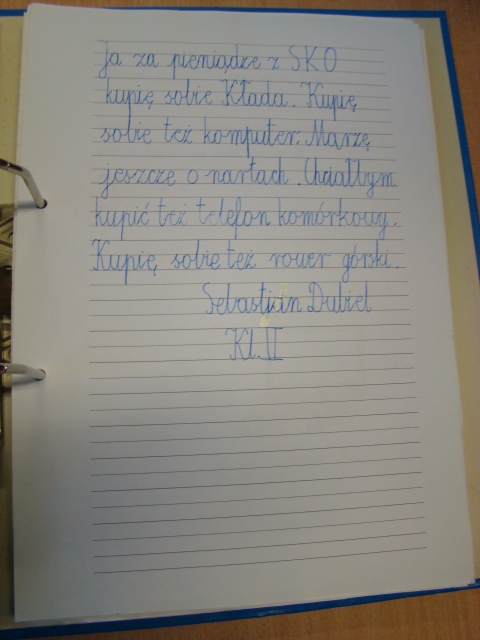 Ja za pieniądze z SKO
kupię sobie Kłada. Kupię
sobie też komputer. Marzę
jeszcze o nartach. Chciałbym
kupić też telefon komórkowy.
Kupię sobie też rower górski.
Sebastian Dubiel
Kl. II